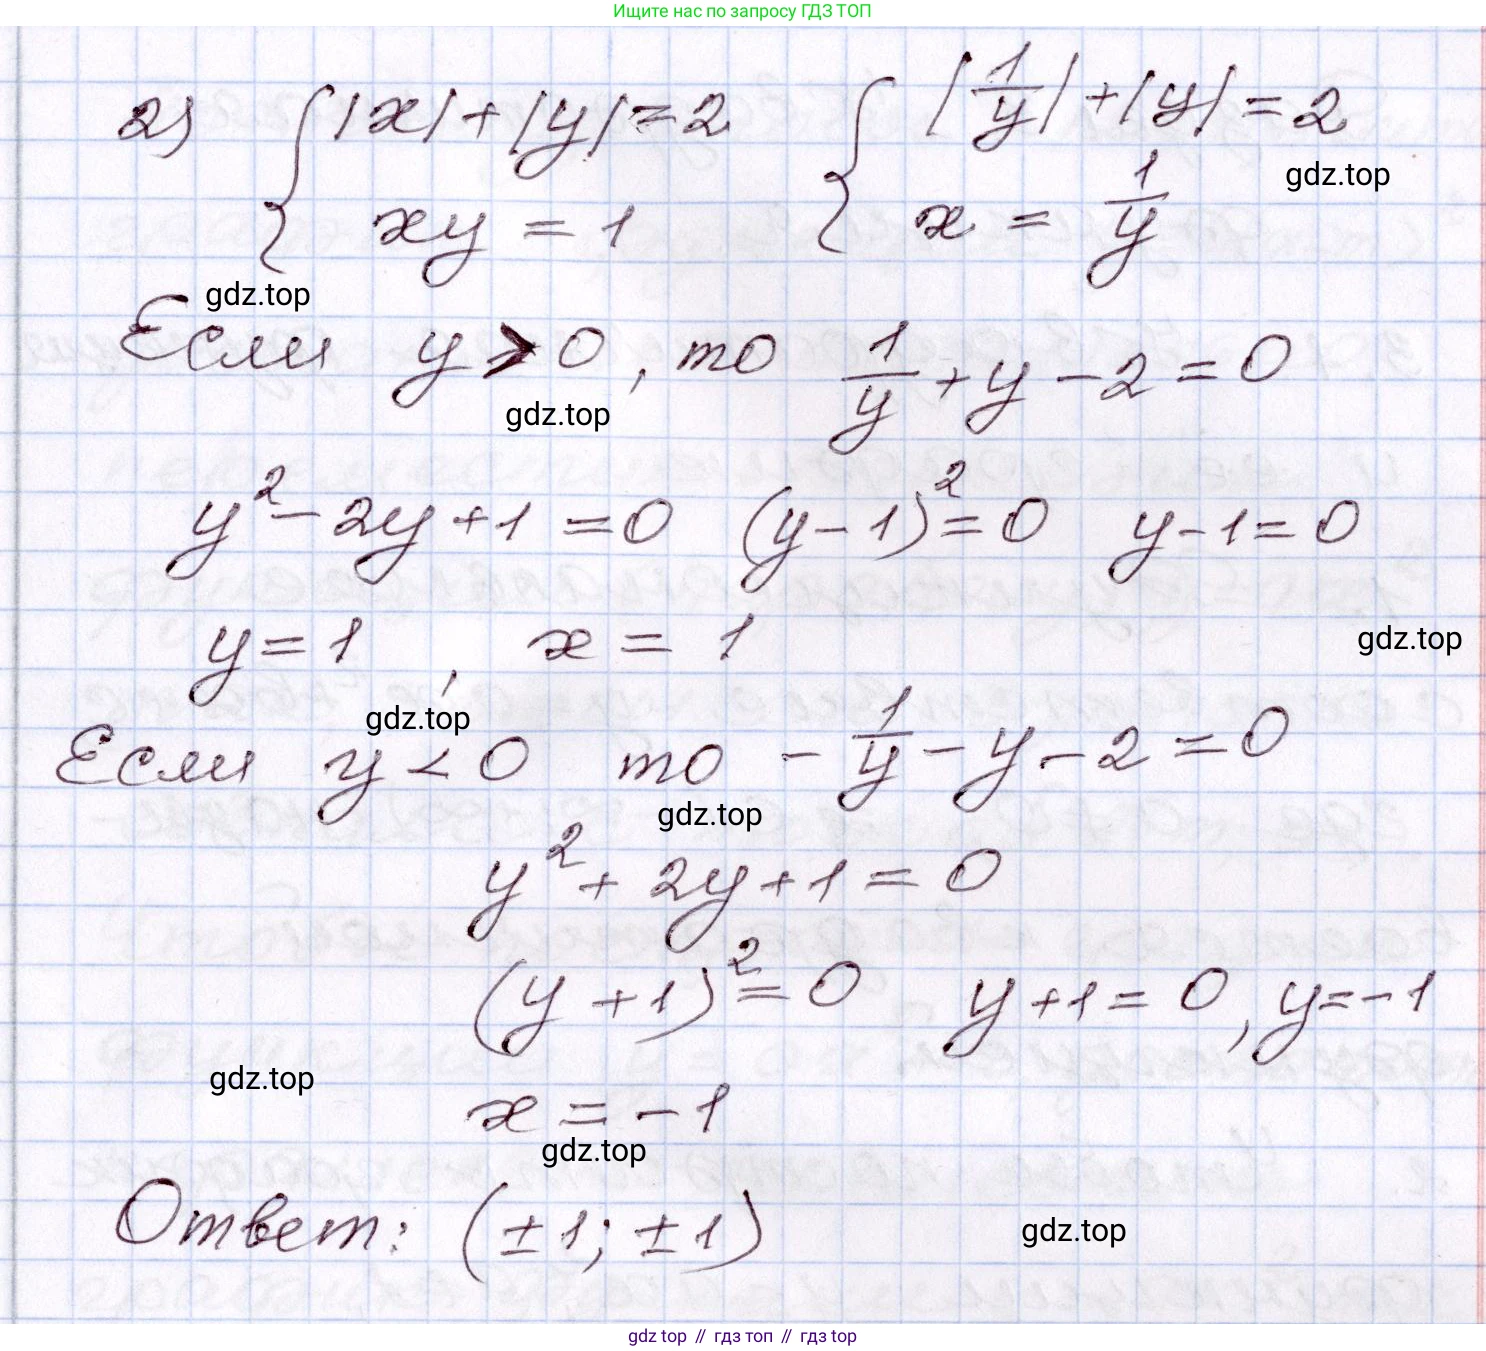 Ищите нас по запросу ГДЗ ТОП
2) { |x| + |y| = 2    { |1/y| + |y| = 2
gdz.top
xy = 1    x = 1/y
gdz.top
Если y > 0, то 1/y + y - 2 = 0
gdz.top
y² - 2y + 1 = 0  (y - 1)² = 0  y - 1 = 0
y = 1, x = 1
gdz.top
gdz.top
Если y < 0 то - 1/y - y - 2 = 0
gdz.top
y² + 2y + 1 = 0
(y + 1)² = 0  y + 1 = 0, y = -1
gdz.top
x = -1
gdz.top
Ответ: (±1; ±1)
gdz.top
gdz top // гдз топ // gdz top